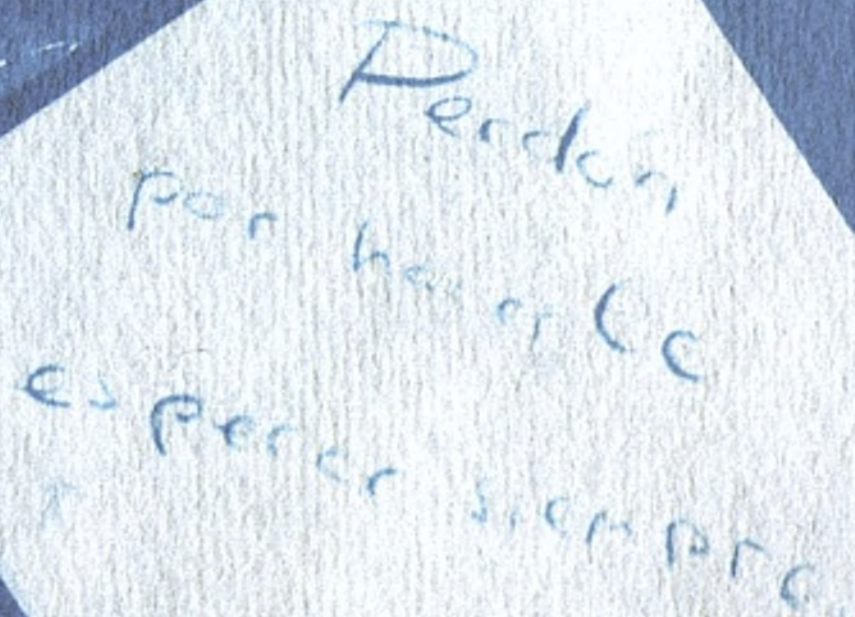 Perdón
por hacerle
esperar siempre